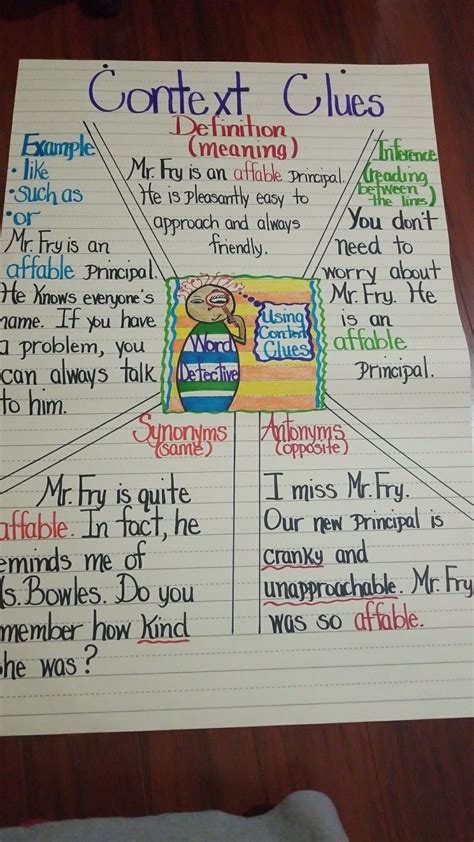 Context Clues
Definition
(meaning)
Mr. Fry is an affable Principal.
He is Pleasantly easy to
approach and always
friendly.
Example
• like
• such as
• or
Mr. Fry is an
affable Principal.
He Knows everyone's
name. If you have
a problem, you
can always talk
to him.
Inference
(reading
between
the lines)
You don't
need to
worry about
Mr. Fry. He
is an
affable
Principal.
Using
Context
Clues
Word
Detective
Synonyms
(same)
Mr. Fry is quite
affable. In fact, he
eminds me of
s. Bowles. Do you
member how Kind
he was?
Antonyms
(opposite)
I miss Mr. Fry.
Our new Principal is
cranky and
unapproachable. Mr. Fry
was so affable.